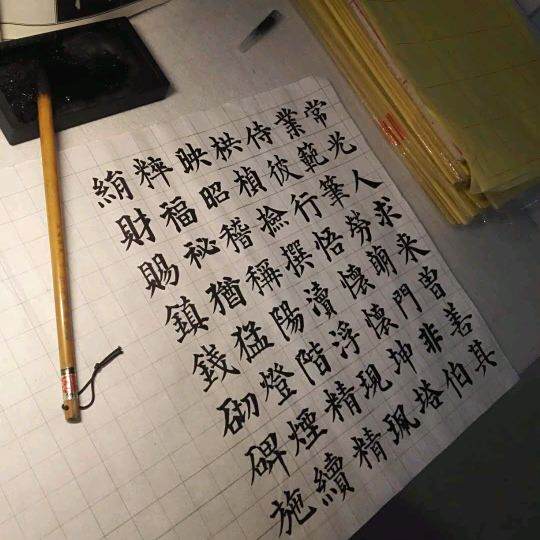 常光人求来曽善其
業範筆勞萌門非伯
侍彼行悟懷懷坤塔
栱楨撿撰瀆浮現珮
映昭稽稱陽階精精
粹福祕猶猛燈煙續
財賜鎮錢砌碑施